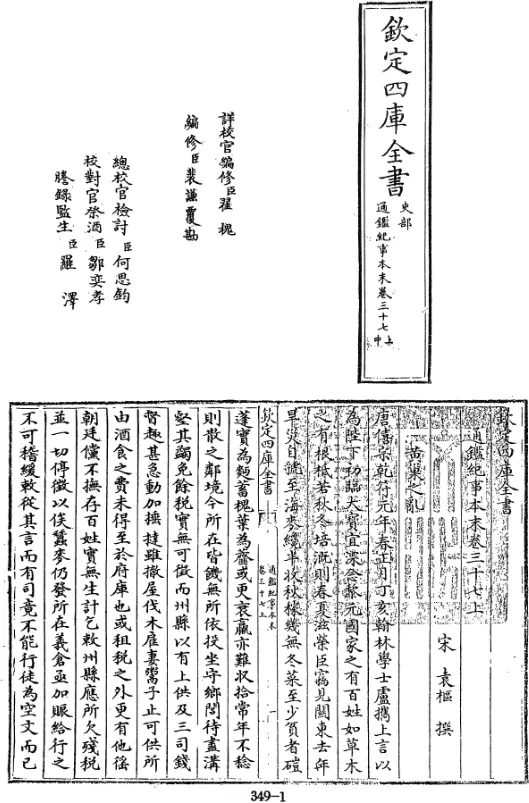 欽定四庫全書
史部
通鑑紀事本末卷三十七上中
詳校官編修臣翟槐
編修臣裴謙覆勘
總校官檢討臣何思鈞
校對官祭酒臣鄒奕孝
謄錄監生臣羅澤
欽定四庫全書
通鑑紀事本末卷三十七上
宋 袁樞 撰
黃巢之亂
唐僖宗乾符元年春正月丁亥翰林學士盧攜上言以
為陛下初臨大寶宜深念黎元國家之有百姓如草木
之有根柢若秋冬培溉則春夏滋榮臣竊見關東去年
旱災自虢至海麥纔半收秋稼幾無冬菜至少貧者磑
欽定四庫全書
通鑑紀事本末
卷三十七上
一
蓬實為麵蓄槐葉為虀或更衰羸亦難収拾常年不稔
則散之鄰境今所在皆饑無所依投坐守鄉閭待盡溝
壑其蠲免餘稅實無可徵而州縣以有上供及三司錢
督趣甚急動加捶撻雖撤屋伐木雇妻鬻子止可供所
由酒食之費未得至於府庫也或租稅之外更有他徭
朝廷儻不撫存百姓實無生計乞敕州縣應所欠殘稅
並一切停徵以俟蠶麥仍發所在義倉亟加賑給行之
不可稽緩敕從其言而有司竟不能行徒為空文而已
349-1